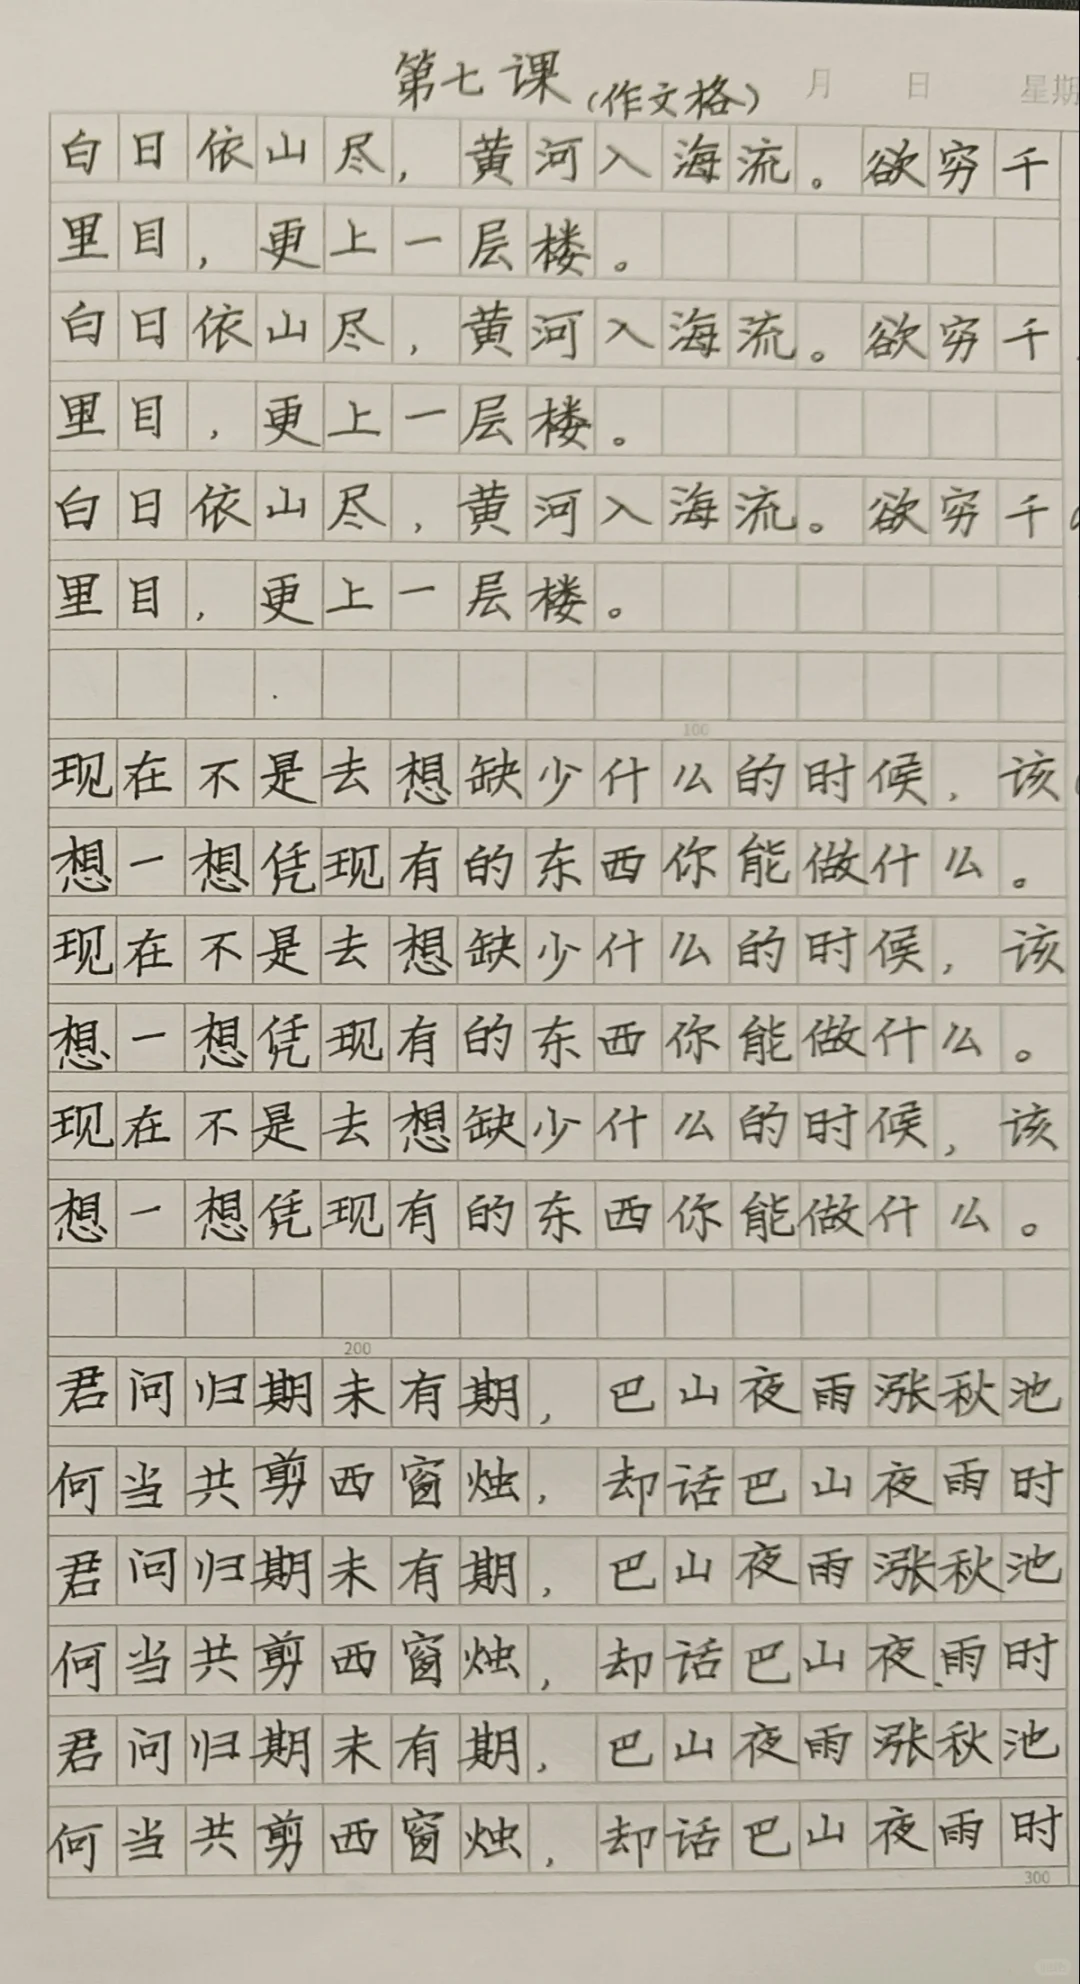 第七课(作文格)
月 日 星期
白日依山尽,黄河入海流。欲穷千
里目,更上一层楼。
白日依山尽,黄河入海流。欲穷千
里目,更上一层楼。
白日依山尽,黄河入海流。欲穷千
里目,更上一层楼。
100
现在不是去想缺少什么的时候,该
想一想凭现有的东西你能做什么。
现在不是去想缺少什么的时候,该
想一想凭现有的东西你能做什么。
现在不是去想缺少什么的时候,该
想一想凭现有的东西你能做什么。
200
君问归期未有期,巴山夜雨涨秋池
何当共剪西窗烛,却话巴山夜雨时
君问归期未有期,巴山夜雨涨秋池
何当共剪西窗烛,却话巴山夜雨时
君问归期未有期,巴山夜雨涨秋池
何当共剪西窗烛,却话巴山夜雨时
300